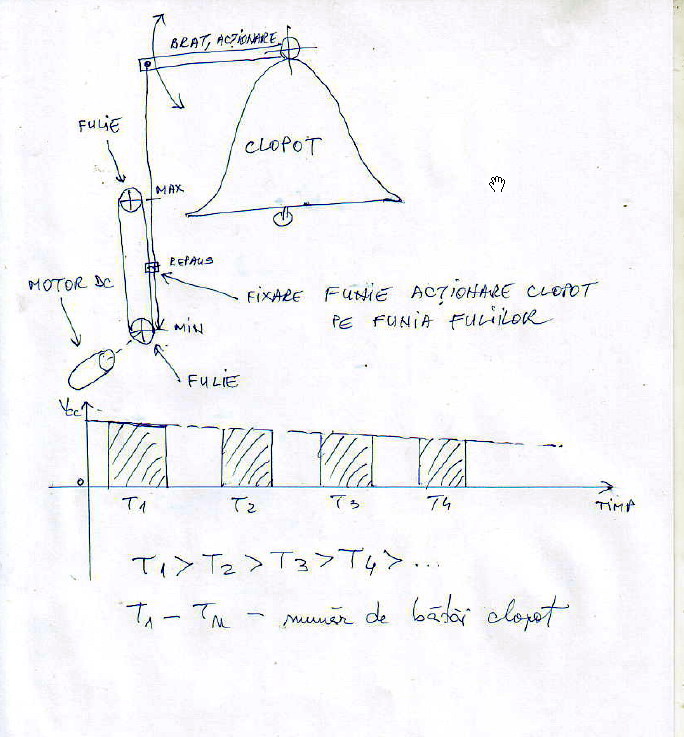 BRAȚ, ACȚIONARE
FULIE
CLOPOT
MAX
REPAUS
MOTOR DC
FIXARE FUNIE ACȚIONARE CLOPOT
PE FUNIA FULIILOR
MIN
FULIE
Vcc
0
T1 T2 T3 T4
TIMP
T1 > T2 > T3 > T4 > ...
T1 – TN – număr de bătăi clopot